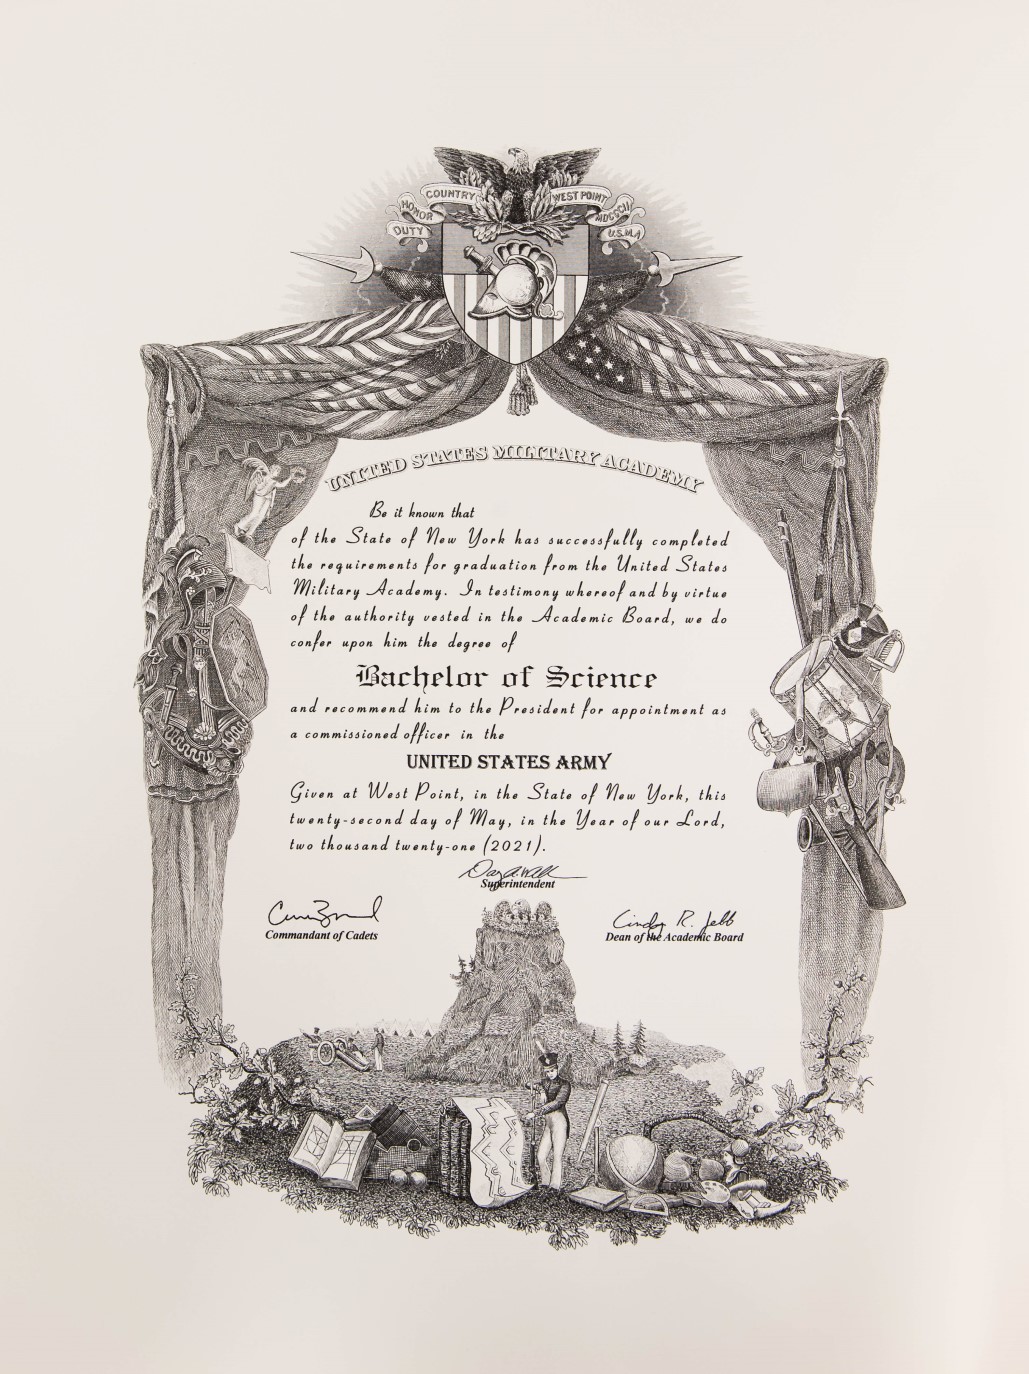 COUNTRY WEST POINT
HONOR MDCCCII
DUTY U.S.M.A
UNITED STATES MILITARY ACADEMY
Be it known that
of the State of New York has successfully completed
the requirements for graduation from the United States
Military Academy. In testimony whereof and by virtue
of the authority vested in the Academic Board, we do
confer upon him the degree of
Bachelor of Science
and recommend him to the President for appointment as
a commissioned officer in the
UNITED STATES ARMY
Given at West Point, in the State of New York, this
twenty-second day of May, in the Year of our Lord,
two thousand twenty-one (2021).
Superintendent
Cindy R. Jebb
Commandant of Cadets
Dean of the Academic Board